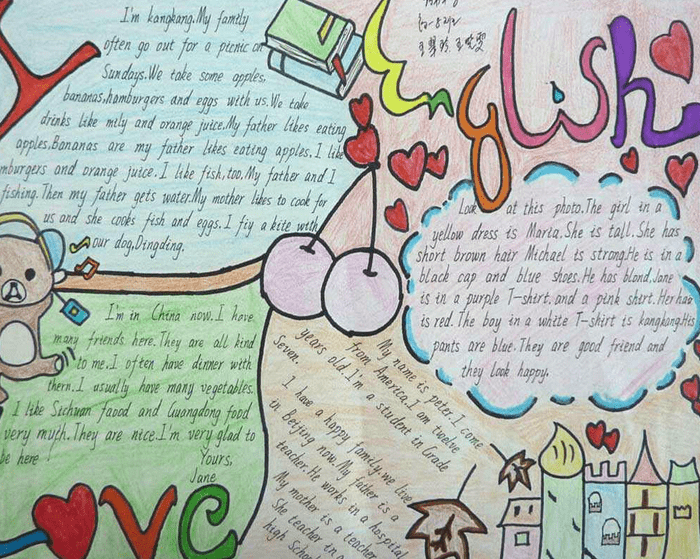 I'm kangkang.My family
often go out for a picnic on
Sundays.We take some apples,
bananas,hamburgers and eggs with us.We take
drinks like mily and orange juice.My father likes eating
apples.Bananas are my father likes eating apples.I like
mburgers and orange juice.I like fish,too.My father and I
fishing.Then my father gets water.My mother likes to cook for
us and she cooks fish and eggs.I fiy a kite with
our dog,Dingding.
English
Look at this photo.The girl in a
yellow dress is Maria.She is tall.She has
short brown hair Michael is strong.He is in a
black cap and blue shoes.He has blond.Jane
is in a purple T-shirt.and a pink shirt.Her hair
is red.The boy in a white T-shirt is kangkang.His
pants are blue.They are good friend and
they look happy.
I'm in China now.I have
many friends here.They are all kind
to me.I often have dinner with
them.I usually have many vegetables.
I like Sichuan faood and Guangdong food
very myth.They are nice.I'm very glad to
be here
Yours,
Jane
My name is peter.I come
from America.I am twelve
years old.I'm a student in Grade
Seven.
I have a happy family.we live
in Beijing now.My father is a
teacher.He works in a hospital
My mother is a teacher
She teacher in a
high School